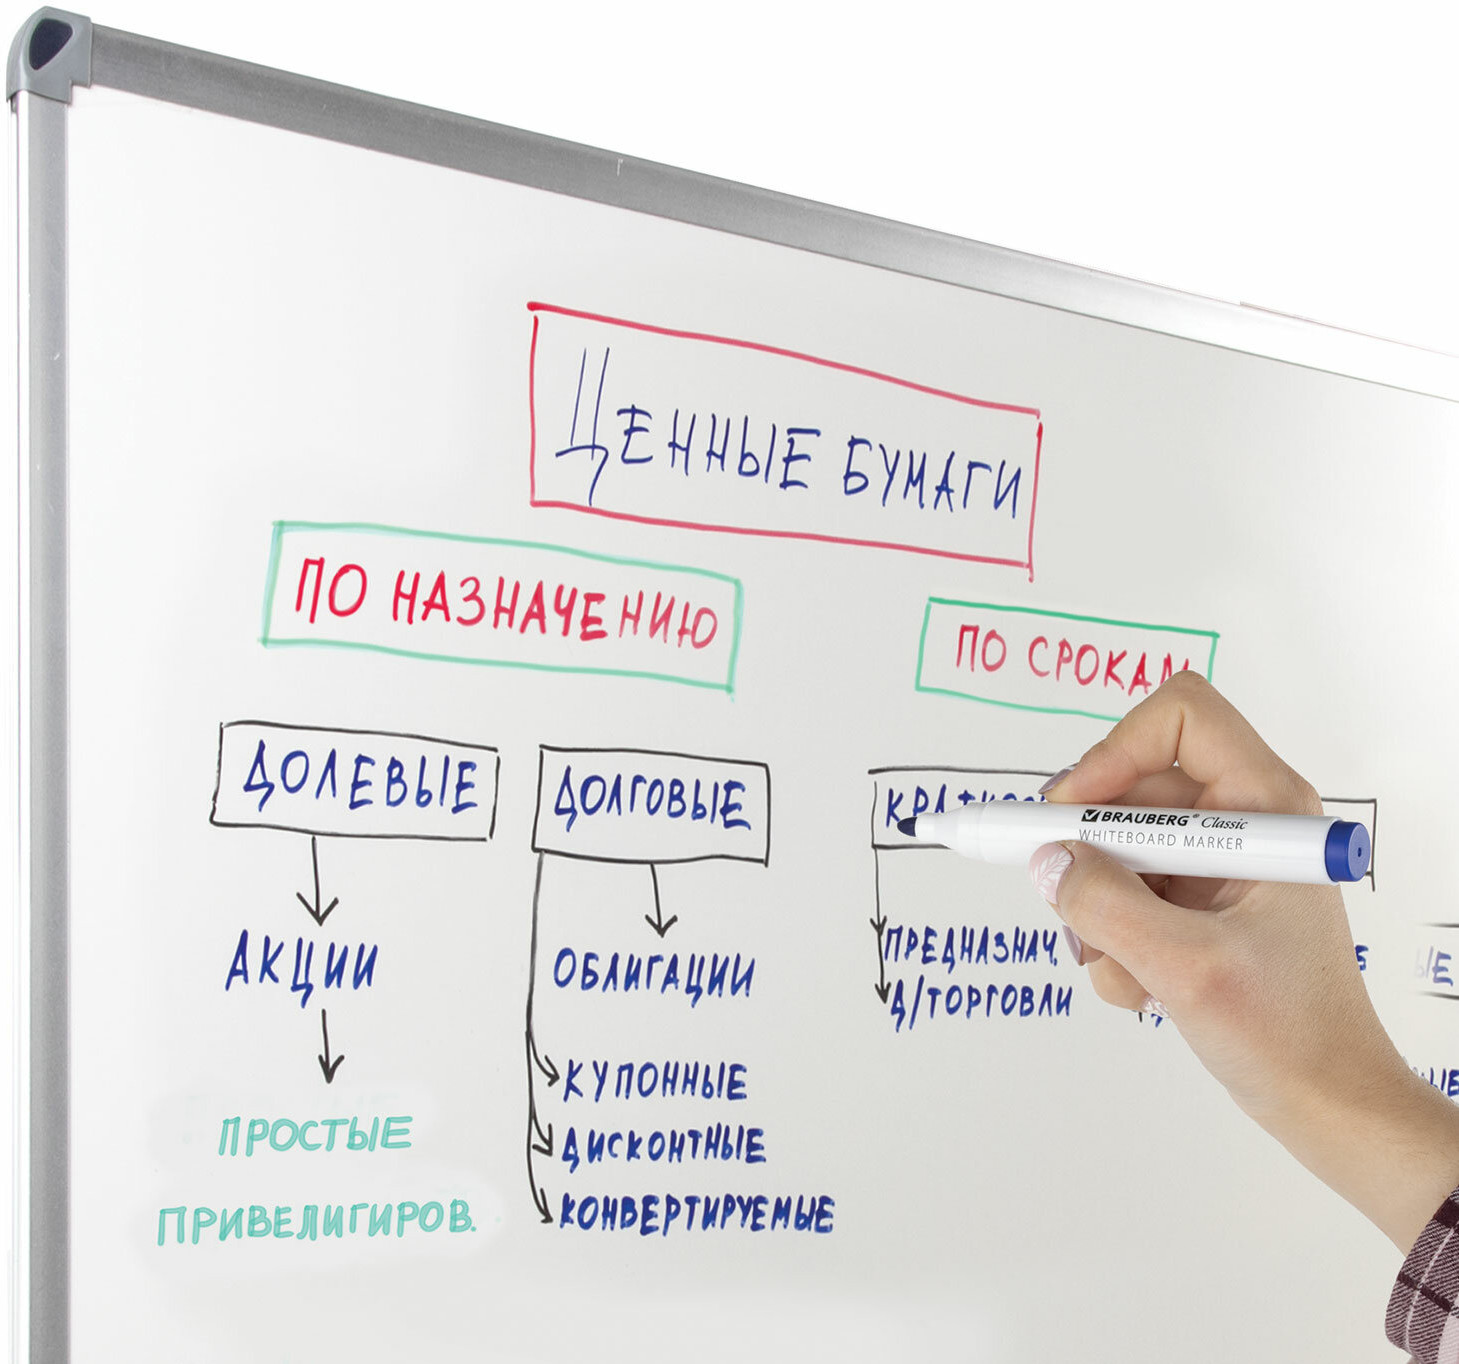 ЦЕННЫЕ БУМАГИ
ПО НАЗНАЧЕНИЮ
ПО СРОКАМ
ДОЛЕВЫЕ
ДОЛГОВЫЕ
BRAUBERG® Classic
WHITEBOARD MARKER
АКЦИИ
ОБЛИГАЦИИ
ПРЕДНАЗНАЧ.
Д/ТОРГОВЛИ
КУПОННЫЕ
ПРОСТЫЕ
ДИСКОНТНЫЕ
ПРИВЕЛИГИРОВ.
КОНВЕРТИРУЕМЫЕ